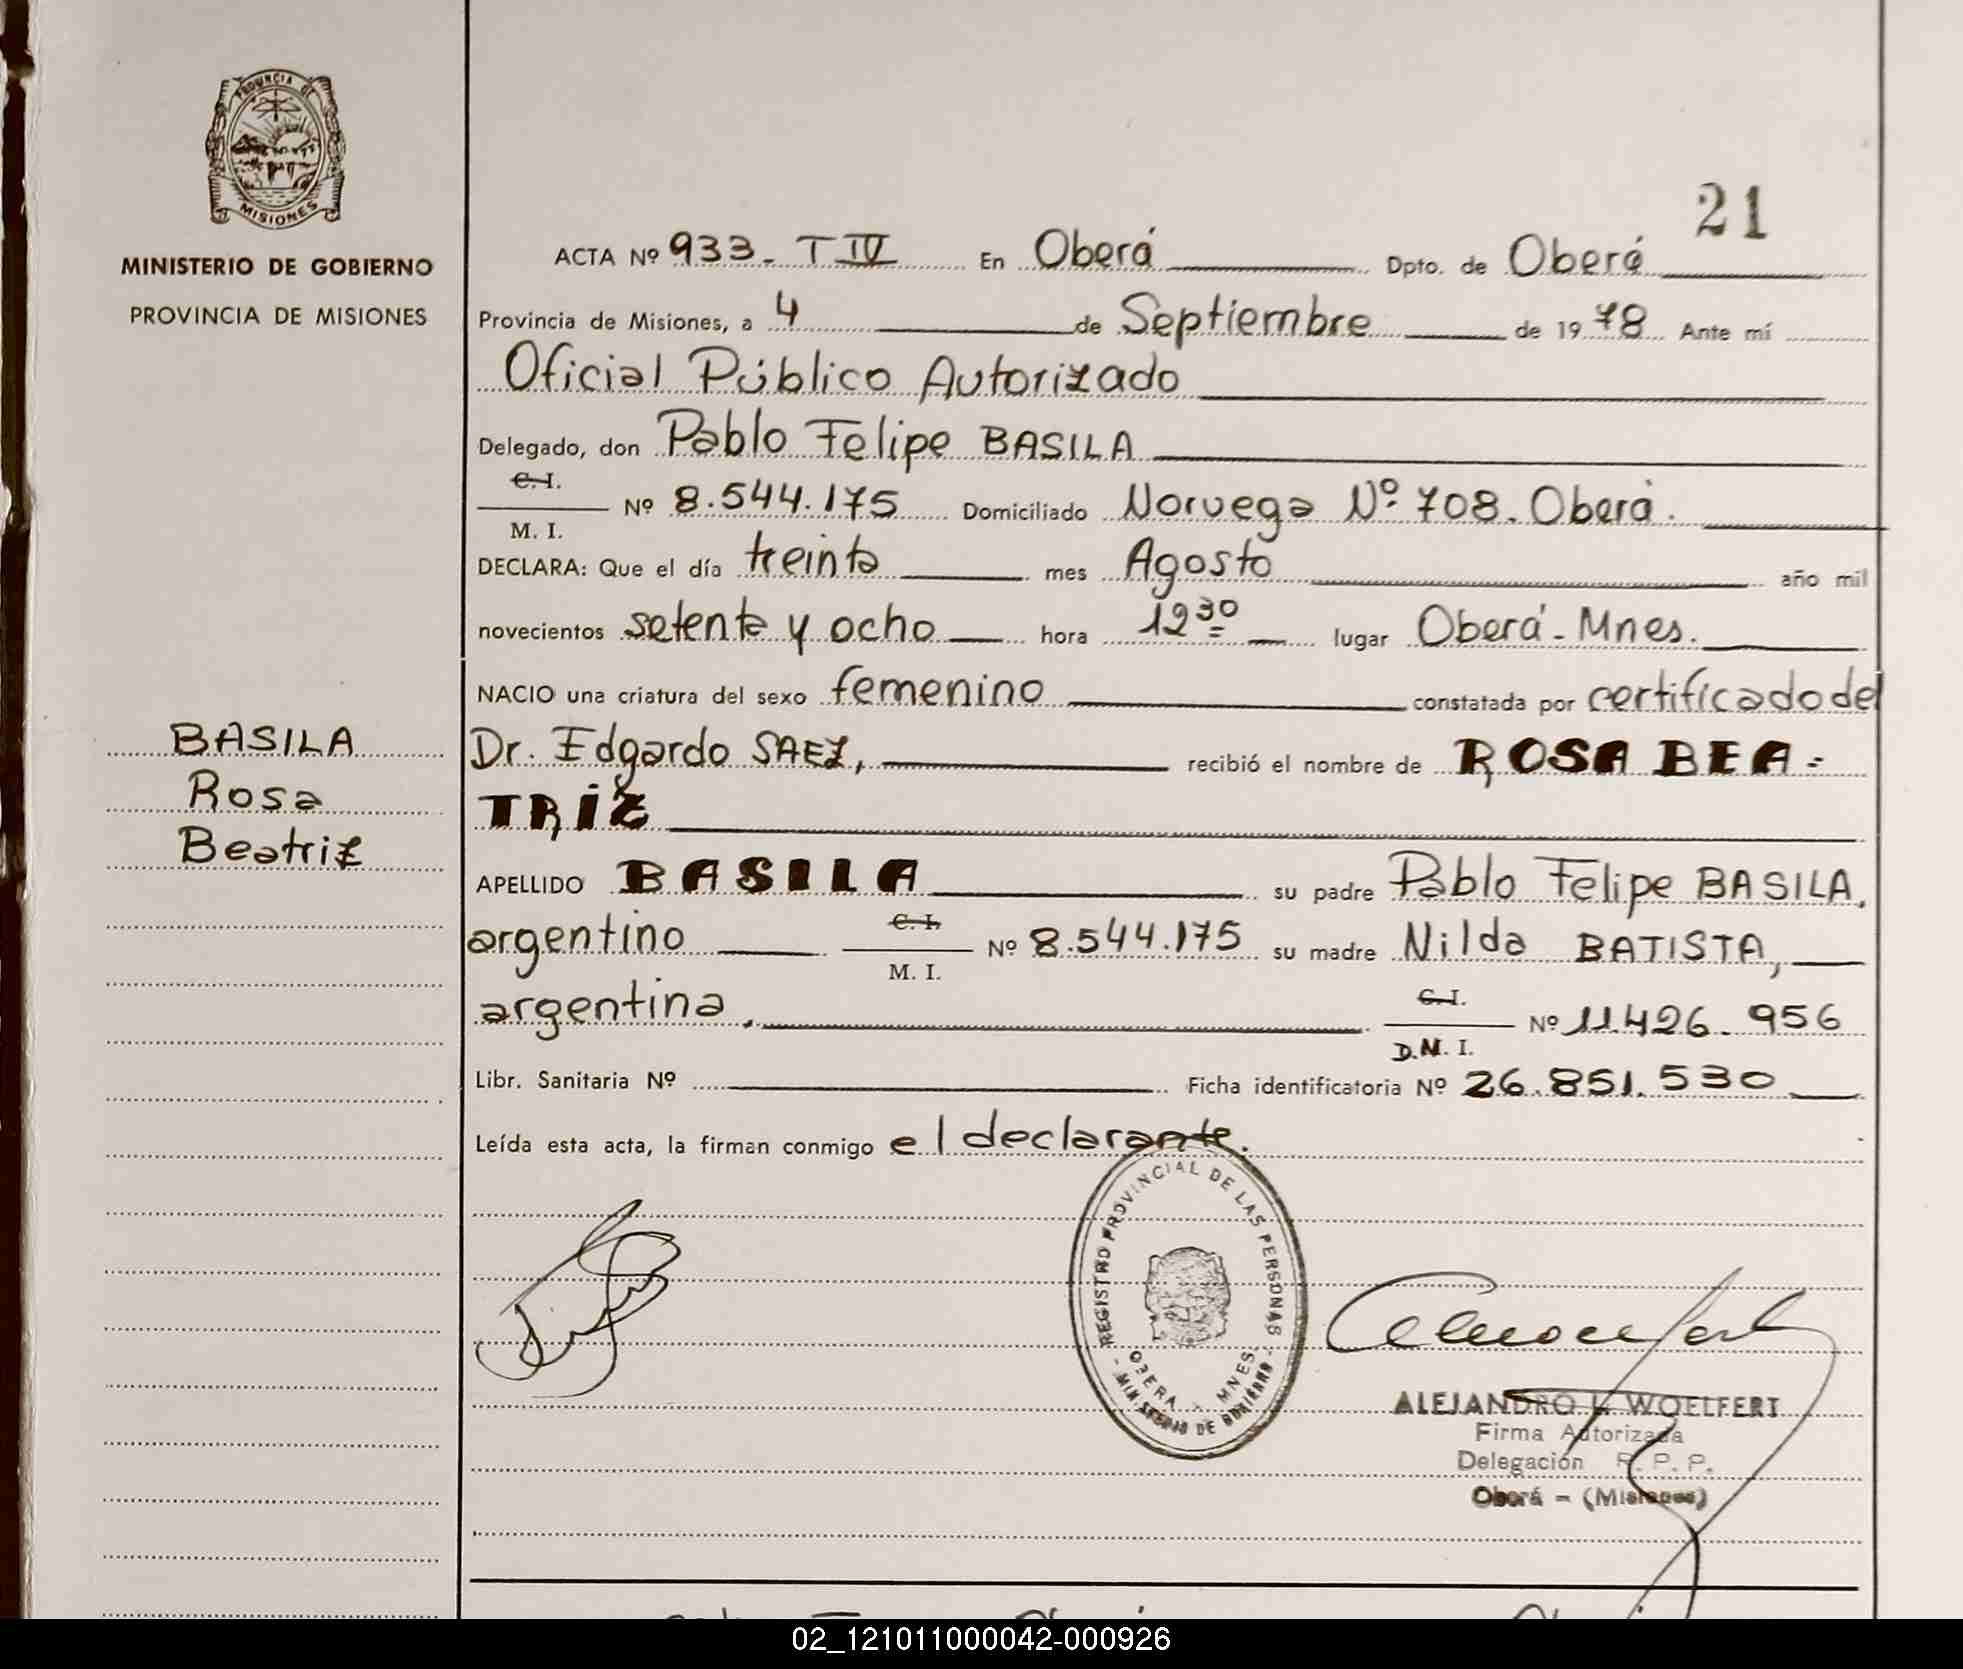 PROVINCIA DE
MISIONES
MINISTERIO DE GOBIERNO
PROVINCIA DE MISIONES
21
ACTA Nº 933_ T IV En Oberá Dpto. de Oberá
Provincia de Misiones, a 4 de Septiembre de 1978 Ante mí
Oficial Público Autorizado
Delegado, don Pablo Felipe BASILA
C.I.
M. I. Nº 8.544.175 Domiciliado Noruega Nº 708. Oberá.
DECLARA: Que el día treinta mes Agosto año mil
novecientos setenta y ocho hora 12 30 lugar Oberá - Mnes.
NACIO una criatura del sexo femenino constatada por certificado del
Dr. Edgardo SAEZ, recibió el nombre de ROSA BEA-
TRIZ
APELLIDO BASILA su padre Pablo Felipe BASILA,
argentino C.I. M. I. Nº 8.544.175 su madre Nilda BATISTA,
argentina, C.I. D.N. I. Nº 11.426.956
Libr. Sanitaria Nº Ficha identificatoria Nº 26.851.530
Leída esta acta, la firman conmigo el declarante.
BASILA
Rosa
Beatriz
REGISTRO PROVINCIAL DE LAS PERSONAS
OBERA - MNES.
- MINISTERIO DE GOBIERNO -
ALEJANDRO L. WOELFERT
Firma Autorizada
Delegación R. P. P.
Oberá - (Misiones)
02_121011000042-000926